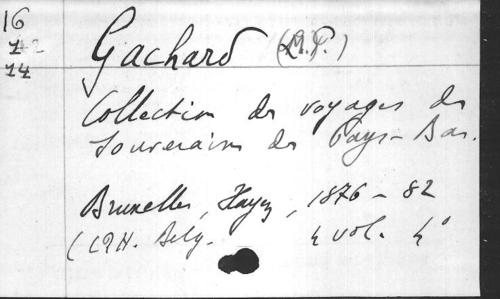 16
1
14
Gachard (L.P.)
Collection des voyages des
Souverains des Pays-Bas.
Bruxelles, Hayez, 1876-82
(CRH. Belg. 4 vol. 4°